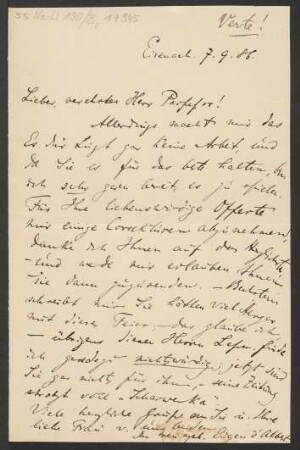 55 Nachl 100/B, 17945
Verte!
Eisenach. 7.9.86.
Lieber, verehrter Herr Professor!
Allerdings macht mir das
Es dur gar keine Arbeit und
da Sie es für das beste halten, bin
ich sehr gern bereit es zu spielen.
Für Ihre liebenswürdige Offerte
mir einige Correkturen abzunehmen,
danke ich Ihnen auf das Herzlichste
– und werde mir erlauben Ihnen
Sie dann zuzusenden. –
schreibt mir Sie hätten viel Aerger
mit dieser Feier, – das glaube ich
– übrigens diesen Herrn finde
ich geradezu nichtswürdig; jetzt sind
Sie gar nichts für ihn, – seine Zeitung
strotzt voll "Scharwenka".
Viele herzliche Grüße an Sie u. Ihre
liebe Frau v. uns beiden
Ihr Eugen d'Albert